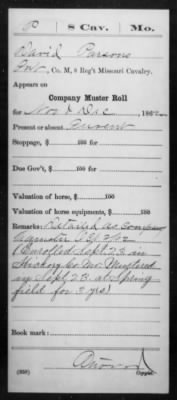 P 8 Cav. Mo.
David Parsons
Pvt, Co. M, 8 Reg't Missouri Cavalry.
Appears on
Company Muster Roll
for Nov & Dec, 1862
Present or absent Present
Stoppage, $ 100 for
Due Gov't, $ 100 for
Valuation of horse, $ 100
Valuation of horse equipments, $ 100
Remarks: Detailed as company
teamster
(Enrolled Sept 23 in
Hickory Co Mo Mustered
in Sept 23 at Spring
field for 3 yrs)
Book mark:
(358) Copyist.